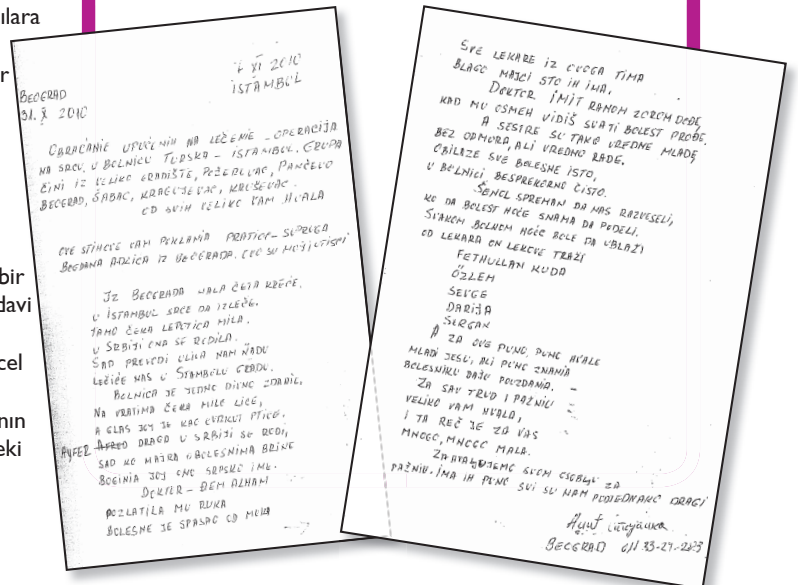 ılara
r
bir
davi
cel
nın
eki
BEOGRAD
31. X 2010
7 XI 2010
ISTAMBUL
OBRAĆANJE UPUĆENIH NA LEČENJE - OPERACIJA
NA SRCU, U BOLNICU TURSKA - ISTAMBUL. GRUPA
ČINI IZ VELIKO GRADIŠTE, POŽEREVAC, PANČEVO
BEOGRAD, ŠABAC, KRAGUJEVAC, KRUŠEVAC.
OD SVIH VELIKO VAM HVALA
OVE STIHOVE VAM POKLANJA PRATIOC - SUPRUGA
BOGDANA IZ BEOGRADA. OVO SU MOJI UTISCI
IZ BEOGRADA MALA ČETA KREĆE,
U ISTAMBUL SRCE DA IZLEČE.
TAMO ČEKA LEPOTICA MILA,
U SRBIJI ONA SE RODILA.
SAD PREVODI ULIVA NAM NADU
LEČIĆE NAS U STAMBOLU GRADU.
BOLNICA JE JEDNO DIVNO ZDANJE,
NA VRATIMA ČEKA MILO LICE,
A GLAS JOJ JE KAO CVRKUT PTICE.
AYFER DRAGO U SRBIJI SE RODI,
SAD KO MAJKA O BOLESNIMA BRINE
BOGINJA JOJ ONO SRPSKO IME.
DOKTOR - ĐEM ALHAN
POZLATILA MU RUKA
BOLESNE JE SPASAO OD MUKA
SVE LEKARE IZ OVOGA TIMA
BLAGO MAJCI ŠTO IH IMA.
DOKTOR İMİT RANOM ZOROM DOĐE,
KAD MU OSMEH VIDIŠ SVATI BOLEST PROĐE.
A SESTRE SU TAKO VREDNE MLADE,
BEZ ODMORA, ALI VREDNO RADE.
OBILAZE SVE BOLESNE ISTO,
U BOLNICI BESPREKORNO ČISTO.
ŠENOL SPREMAN DA NAS RAZVESELI,
KO DA BOLEST HOĆE SNAMA DA PODELI.
SVAKOM BOLNOM HOĆE BOLE DA UBLAŽI
OD LEKARA ON LEKOVE TRAŽI
FETHULLAH KUDA
ÖZLEM
SEVGE
DARIJA
SERGAN
A ZA OVE PUNO, PUNO HVALE
MLADI JESU, ALI PUNO ZNANJA
BOLESNIKU DAJU POUZDANJA.
ZA SAV TRUD I PAŽNJU
VELIKO VAM HVALA,
I TA REČ JE ZA VAS
MNOGO, MNOGO MALA.
ZAHVALJUJEMO SVOM OSOBLJU ZA
PAŽNJU. IMA IH PUNO SVI SU NAM PODJEDNAKO DRAGI
BEOGRAD